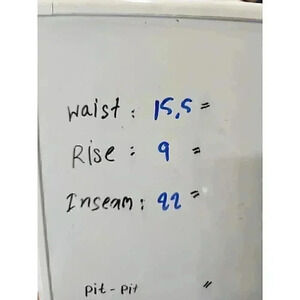 waist : 15,5 =
Rise : 9 =
Inseam : 22 =
pit - pit "